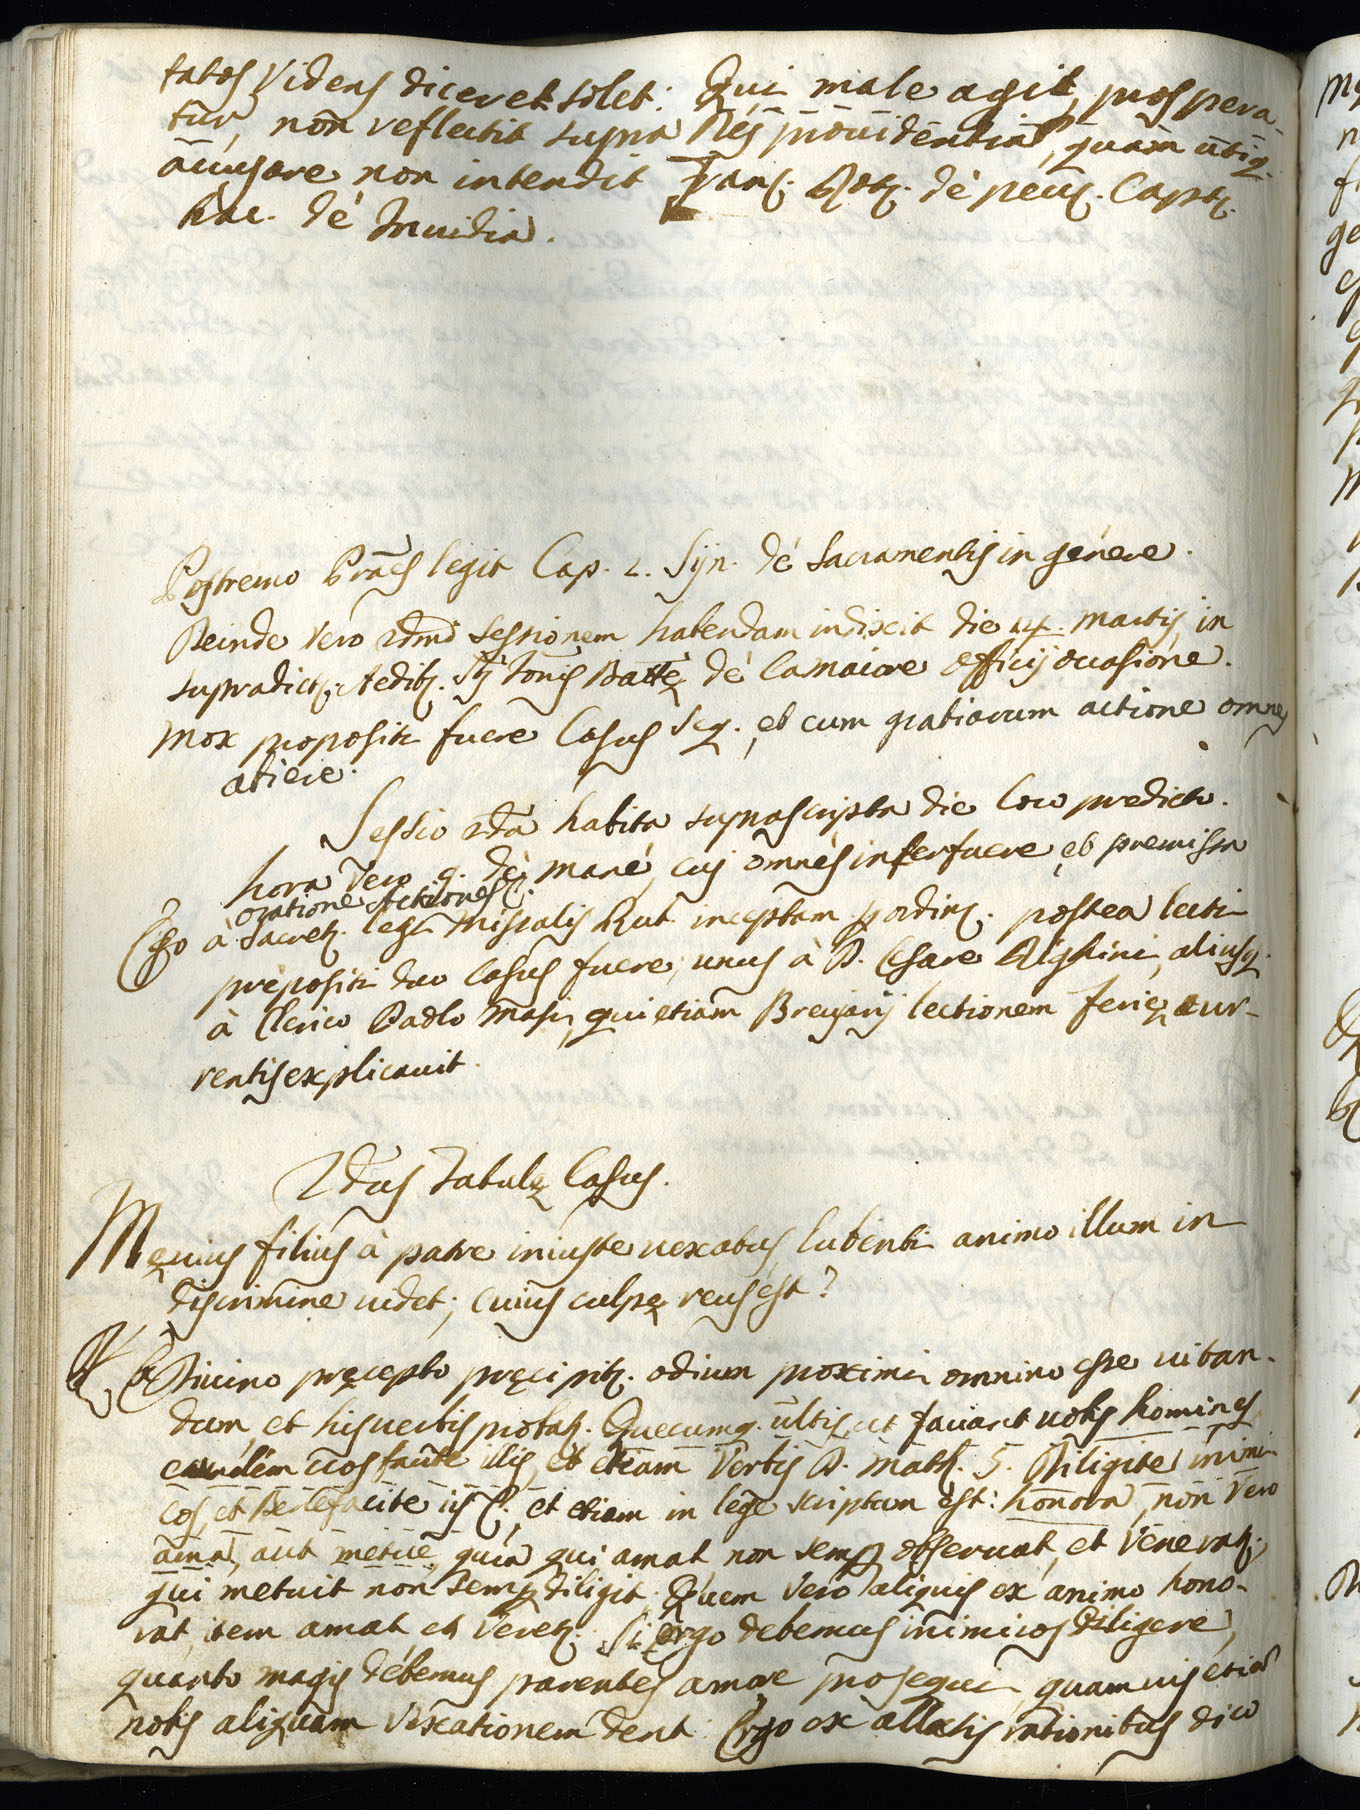 tatos videns diceret solet: Qui male agit, prospera-
tur, non reflectit supra providentiã, quam utiq.
accusare non intendit Franc. de pecc. Capt.
hac. dé Invidia.
Postremo legit Cap. 2. Sÿn. dé Sacramentis in génere.
Deinde vero 2dm̃ Sessionem habendam indixit die Martij in
supradict. Aedib. Sti Batte dé Camaiore officij occasione.
Mox propositi fuere Casus seq. et cum gratiarum actione omnes
abiere.
Sessio 2da habita suprascripta die loco predicto.
hora vero 9. dé mané, cuj omnes interfuere et premissa
oratione Actiones &.
Ego à leg. Missalis Rub. inceptam p ordine. postea lecti
prèpositi duo Casus fuere, unus à D. Cesare Righini, aliusq.
à Clerico Paolo Masi, qui etiam Breuiarij lectionem ferię cur-
rentis explicauit.
2dus Tabulę Casus.
Męuius filius à patre iniuste uexatus lubenti animo illum in
discrimine uidet; cuius culpę reus est?
Diuino pręcepto pręcipit. odium proximi omnino esse uitan-
dum, et his uerbis probat. Quecumq. ultis ut faciant uobis homines
eadem uos facite illis, et etiam Verbis D. Math. 5. Diligite inimi-
cos, et Benefacite ijs &., et etiam in lege scriptum est: honora, non vero
ama, aut metue, quia qui amat non semp obseruat, et venerat.,
qui metuit non semp diligit. Quem vero aliquis ex animo hono-
rat, item amat, et veret. Si ergo debemus inimicos diligere,
quanto magis debemus parentes amore prosequi, quamuis etiã
nobis aliquam vexationem dent. Ergo ex allatis rationibus dico